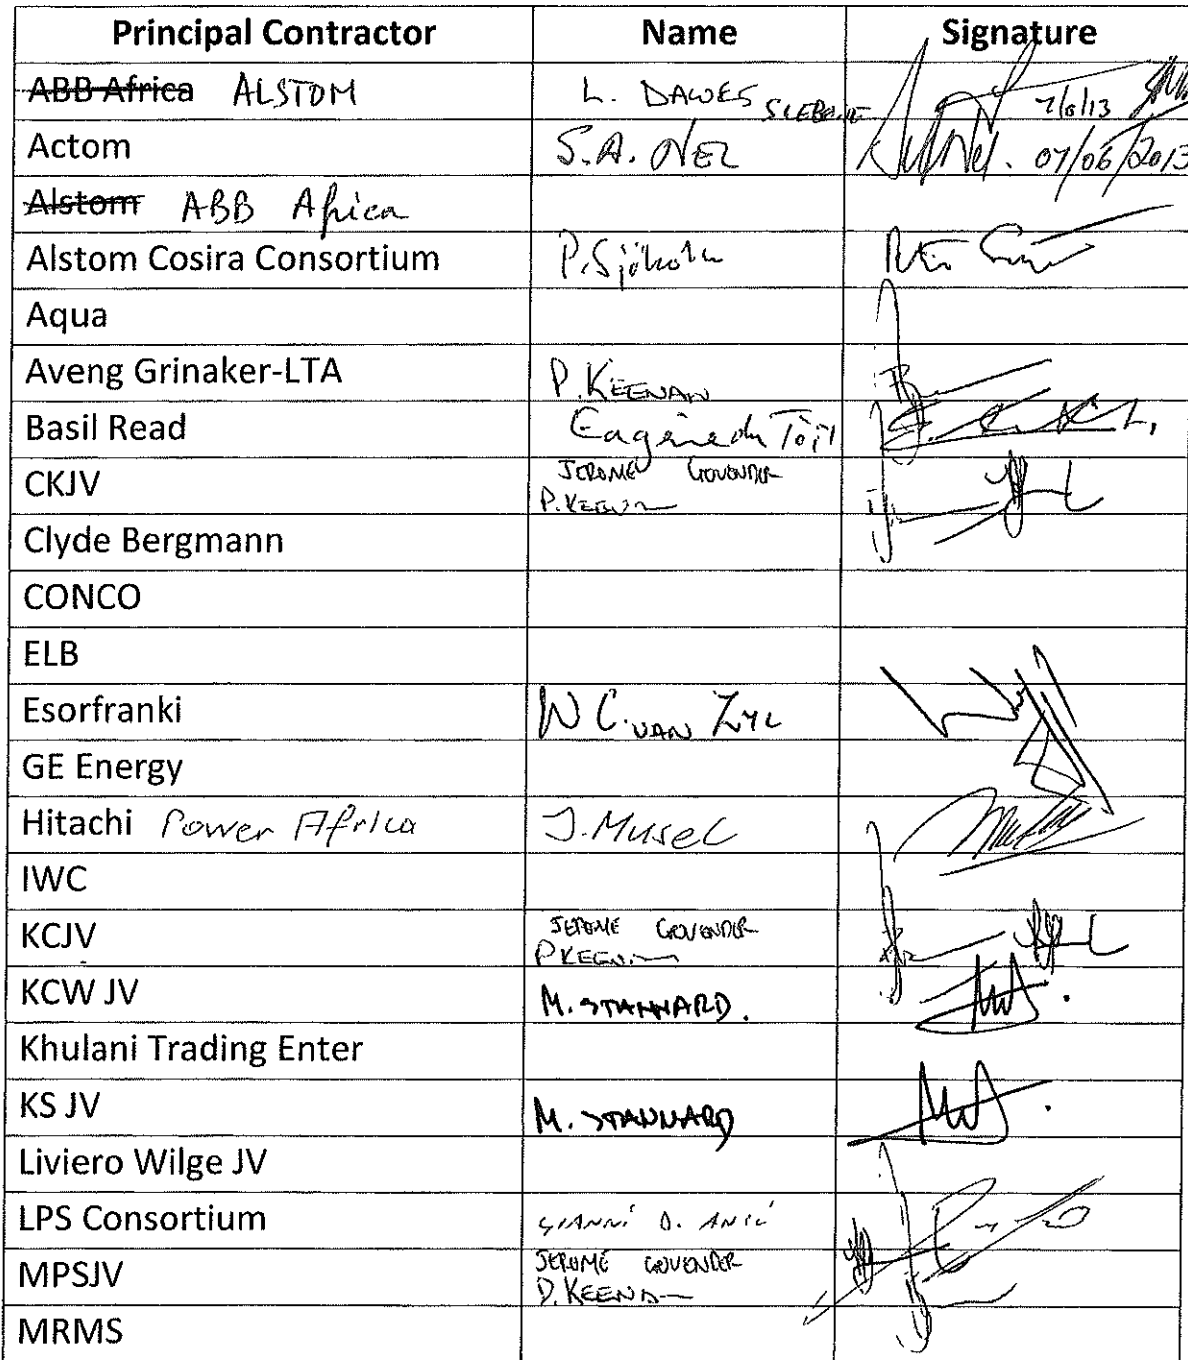 Principal Contractor Name Signature
ABB Africa ALSTOM L. DAWES 7/6/13
Actom S.A. NEL 07/06/2013
Alstom ABB Africa
Alstom Cosira Consortium P. Sjöholm
Aqua
Aveng Grinaker-LTA P. KEENAN
Basil Read Eugene du Toit
CKJV JEROME GOVENDER
P. KEENAN
Clyde Bergmann
CONCO
ELB
Esorfranki W C. VAN ZYL
GE Energy
Hitachi Power Africa J. Musel
IWC
KCJV JEROME GOVENDER
P KEENAN
KCW JV M. STANNARD.
Khulani Trading Enter
KS JV M. STANNARD
Liviero Wilge JV
LPS Consortium GIANNI D.
MPSJV JEROME GOVENDER
P. KEENAN
MRMS